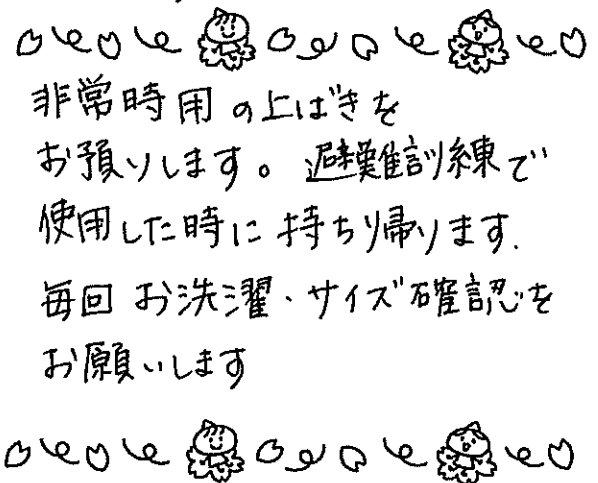 非常時用の上ばきを
お預りします。避難訓練で
使用した時に持ち帰ります.
毎回お洗濯・サイズ確認を
お願いします